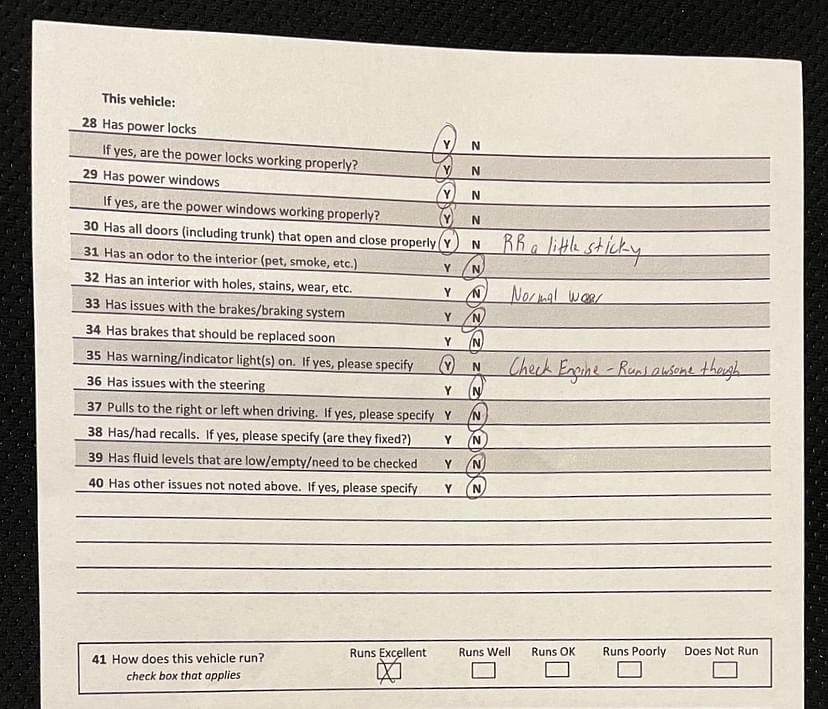 This vehicle:
28 Has power locks Y N
If yes, are the power locks working properly? Y N
29 Has power windows Y N
If yes, are the power windows working properly? Y N
30 Has all doors (including trunk) that open and close properly Y N RR a little sticky
31 Has an odor to the interior (pet, smoke, etc.) Y N
32 Has an interior with holes, stains, wear, etc. Y N Normal wear
33 Has issues with the brakes/braking system Y N
34 Has brakes that should be replaced soon Y N
35 Has warning/indicator light(s) on. If yes, please specify Y N Check Engine - Runs awsome though
36 Has issues with the steering Y N
37 Pulls to the right or left when driving. If yes, please specify Y N
38 Has/had recalls. If yes, please specify (are they fixed?) Y N
39 Has fluid levels that are low/empty/need to be checked Y N
40 Has other issues not noted above. If yes, please specify Y N
41 How does this vehicle run? Runs Excellent Runs Well Runs OK Runs Poorly Does Not Run
check box that applies X